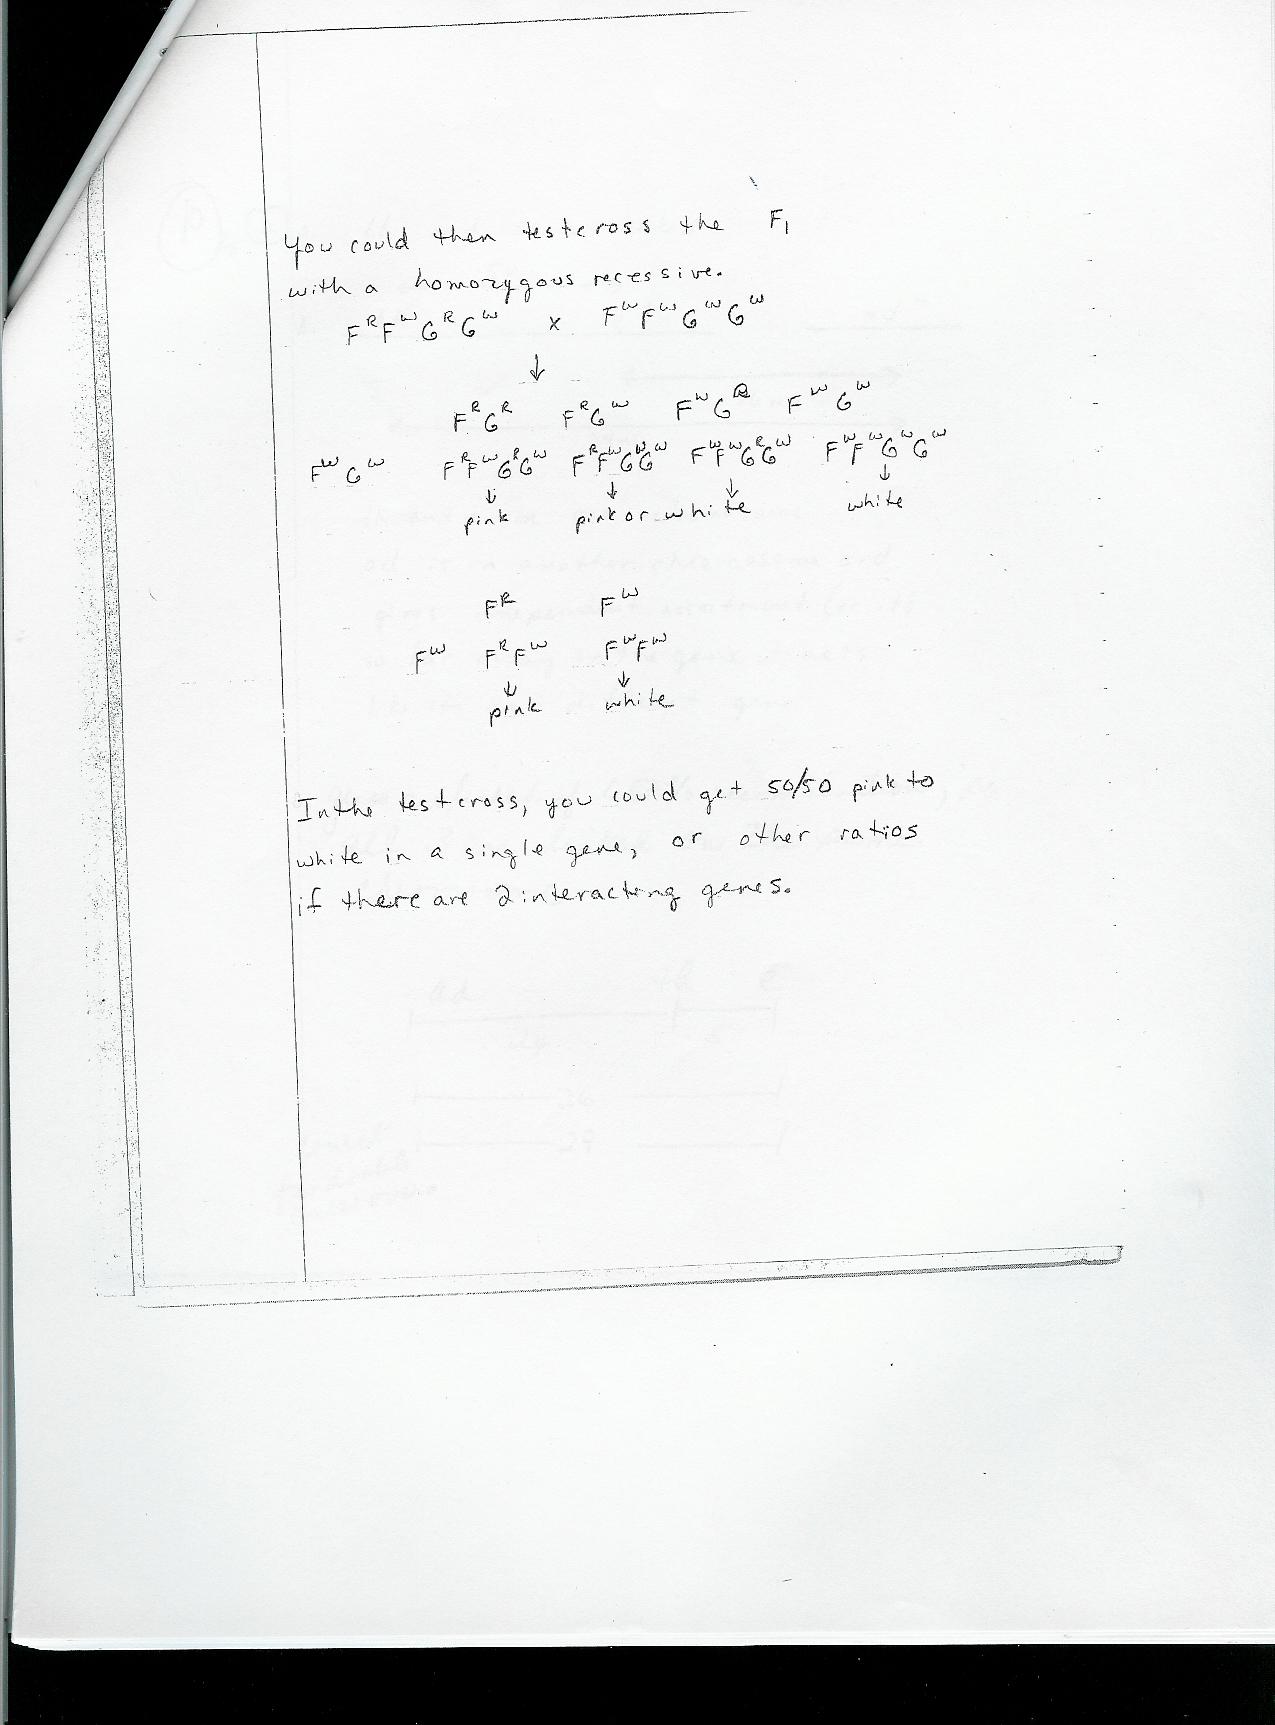 You could then testcross the F₁
with a homozygous recessive.
FᴿFᵂGᴿGᵂ x FᵂFᵂGᵂGᵂ
↓
FᴿGᴿ FᴿGᵂ FᵂGᴿ FᵂGᵂ
FᵂGᵂ FᴿFᵂGᴿGᵂ FᴿFᵂGᵂGᵂ FᵂFᵂGᴿGᵂ FᵂFᵂGᵂGᵂ
↓ ↓ ↓ ↓
pink pink or white white
Fᴿ Fᵂ
Fᵂ FᴿFᵂ FᵂFᵂ
↓ ↓
pink white
In the testcross, you could get 50/50 pink to
white in a single gene, or other ratios
if there are 2 interacting genes.